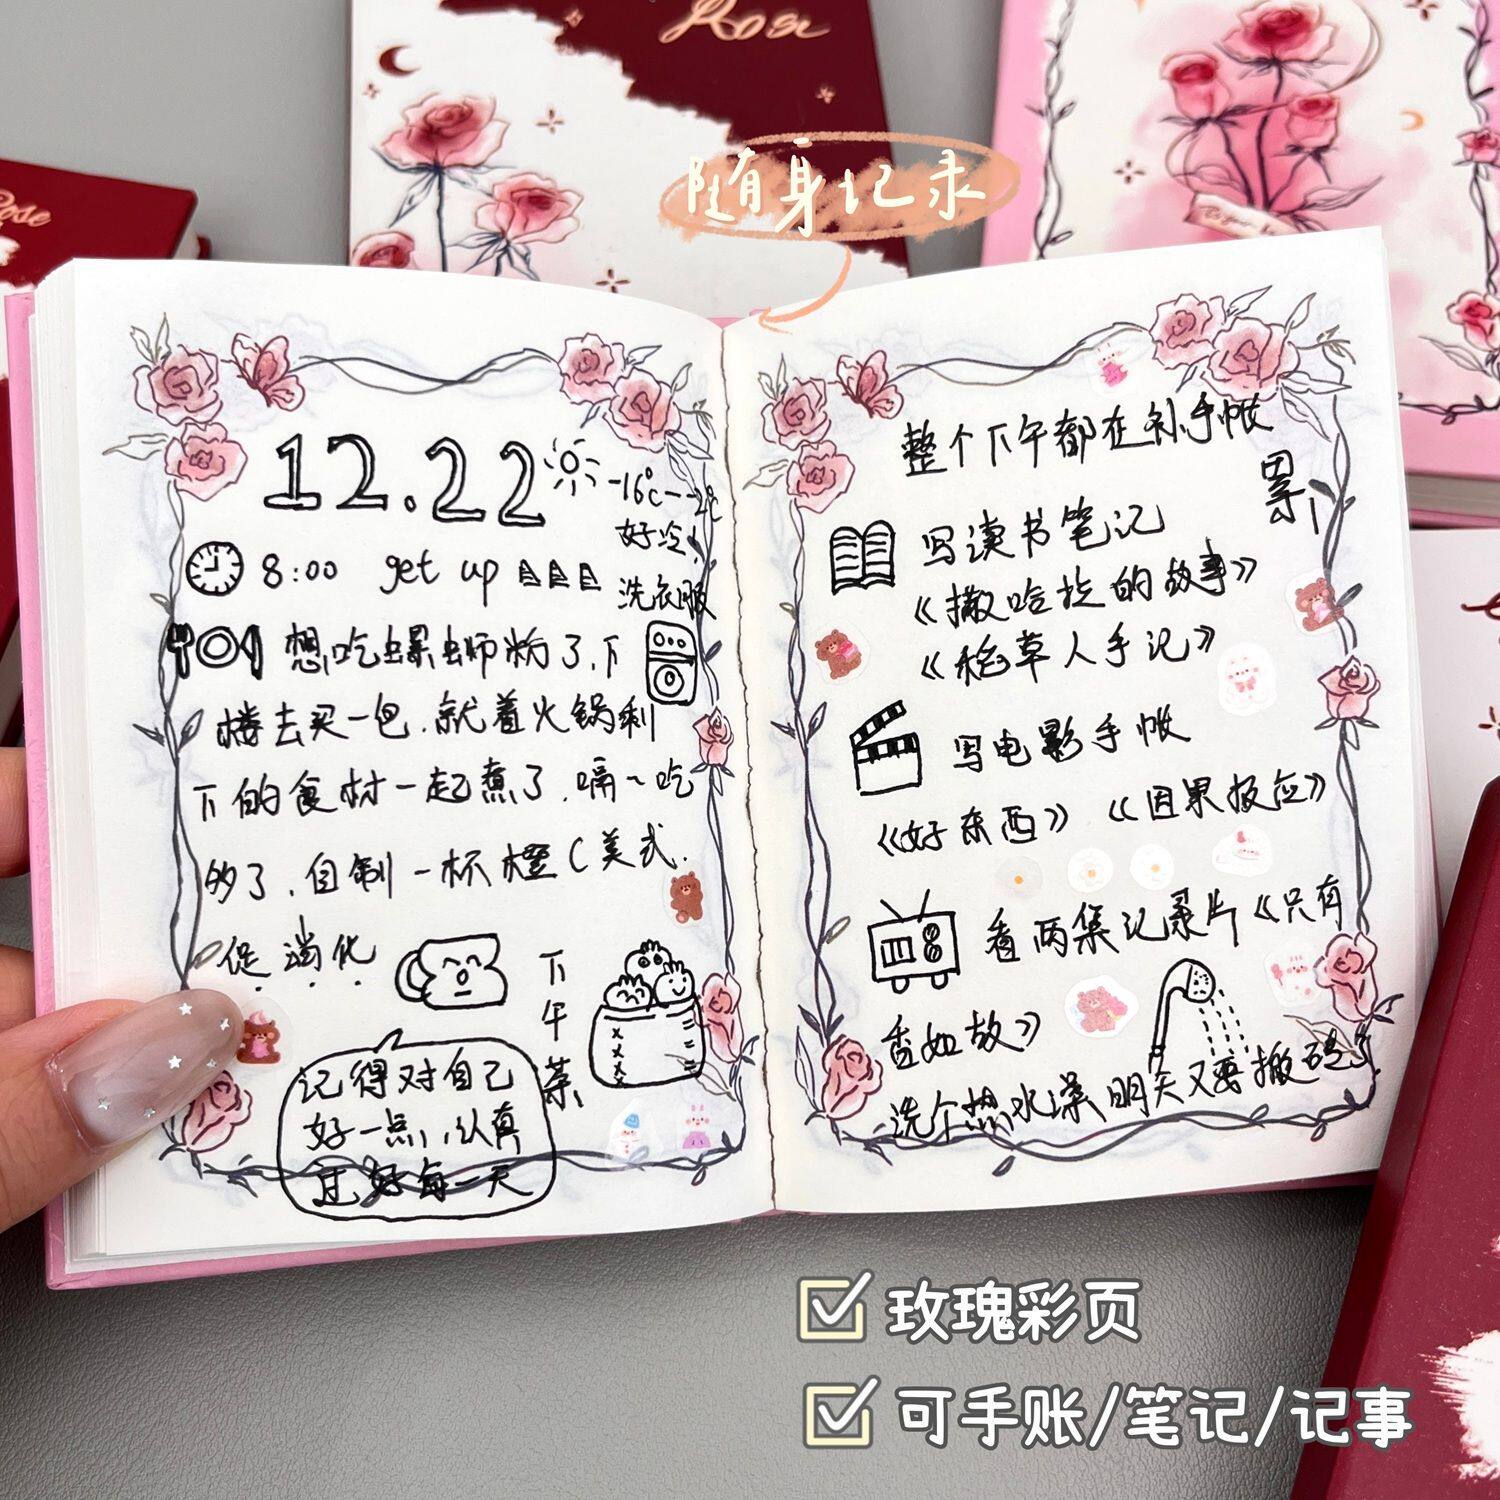 Rose
Rose
随身记录
12.22
-16℃--2℃
好冷!
8:00 get up
洗衣服
想吃螺蛳粉了,下
楼去买一包,就着火锅剩
下的食材一起煮了,嗝~吃
够了,自制一杯橙C美式.
促消化
下午茶
记得对自己
好一点,认真
过好每一天
整个下午都在补手帐
累
写读书笔记
《撒哈拉的故事》
《稻草人手记》
写电影手帐
《好东西》《因果报应》
看两集记录片《只有
香如故》
洗个热水澡,明天又要搬砖了
玫瑰彩页
可手账/笔记/记事